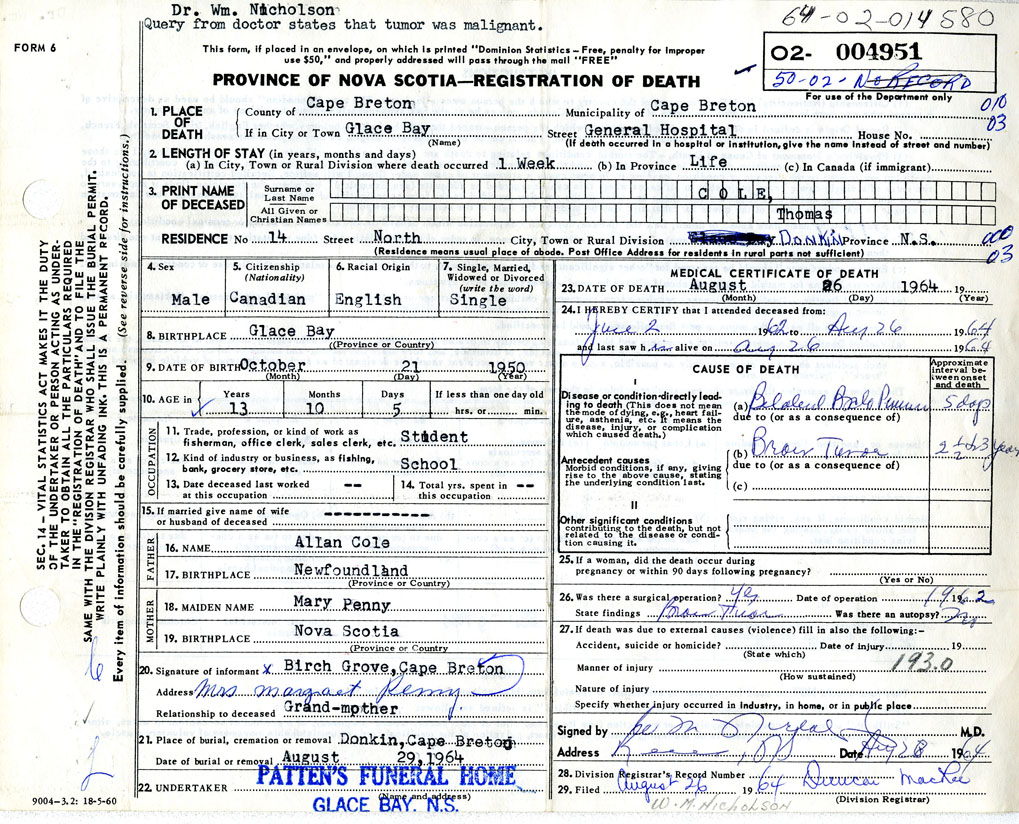 Dr. Wm. Nicholson
Query from doctor states that tumor was malignant.
64-02-014580
FORM 6
This form, if placed in an envelope, on which is printed "Dominion Statistics – Free, penalty for improper
use $50," and properly addressed will pass through the mail "FREE"
02- 004951
50-02- No RECORD
For use of the Department only
PROVINCE OF NOVA SCOTIA—REGISTRATION OF DEATH
010
03
1. PLACE OF DEATH
County of Cape Breton Municipality of Cape Breton
If in City or Town Glace Bay Street General Hospital House No.
(Name) (If death occurred in a hospital or institution, give the name instead of street and number)
2. LENGTH OF STAY (in years, months and days)
(a) In City, Town or Rural Division where death occurred 1 Week (b) In Province Life (c) In Canada (if immigrant)
3. PRINT NAME OF DECEASED
Surname or Last Name COLE,
All Given or Christian Names Thomas
RESIDENCE No 14 Street North City, Town or Rural Division DONKIN Province N.S.
000
03
(Residence means usual place of abode. Post Office Address for residents in rural parts not sufficient)
4. Sex
Male
5. Citizenship
(Nationality)
Canadian
6. Racial Origin
English
7. Single, Married, Widowed or Divorced
(write the word)
Single
8. BIRTHPLACE Glace Bay
((Province or Country)
9. DATE OF BIRTH October 21 1950
(Month) (Day) (Year)
10. AGE in
Years Months Days If less than one day old
13 10 5 hrs. or min.
OCCUPATION
11. Trade, profession, or kind of work as
fisherman, office clerk, sales clerk, etc. Student
12. Kind of industry or business, as fishing,
bank, grocery store, etc. School
13. Date deceased last worked
at this occupation --
14. Total yrs. spent in
this occupation --
15. If married give name of wife
or husband of deceased --------------
FATHER
16. NAME Allan Cole
17. BIRTHPLACE Newfoundland
(Province or Country)
MOTHER
18. MAIDEN NAME Mary Penny
19. BIRTHPLACE Nova Scotia
(Province or Country
20. Signature of informant x Birch Grove, Cape Breton
Address Mrs Margaret Penny
Relationship to deceased Grand-mother
21. Place of burial, cremation or removal Donkin, Cape Breton
Date of burial or removal August 29, 1964
22. UNDERTAKER
(Name and address)
PATTEN'S FUNERAL HOME
GLACE BAY, N.S.
9004–3.2: 18-5-60
MEDICAL CERTIFICATE OF DEATH
23. DATE OF DEATH August 26 1964
(Month) (Day) (Year)
24. I HEREBY CERTIFY that I attended deceased from:
June 2 1962 to Aug 26 1964
and last saw him alive on Aug 26 1964
CAUSE OF DEATH
Approximate interval between onset and death
I
Disease or condition directly leading to death (This does not mean the mode of dying, e.g., heart failure, asthenia, etc. It means the disease, injury, or complication which caused death.)
(a) 5 days
due to (or as a consequence of)
Antecedent causes
Morbid conditions, if any, giving rise to the above cause, stating the underlying condition last.
(b) Brain Tumor 2½ to 3 years
due to (or as a consequence of)
(c)
II
Other significant conditions
contributing to the death, but not related to the disease or condition causing it.
25. If a woman, did the death occur during
pregnancy or within 90 days following pregnancy?
(Yes or No)
26. Was there a surgical operation? Yes Date of operation 1962
State findings Brain Tumor Was there an autopsy?
27. If death was due to external causes (violence) fill in also the following:–
Accident, suicide or homicide? Date of injury 19
(State which)
Manner of injury 193.0
(How sustained)
Nature of injury
Specify whether injury occurred in industry, in home, or in public place
Signed by M.D.
Address Date Aug 28 1964
28. Division Registrar's Record Number
29. Filed August 26 1964 Duncan MacRae
(Division Registrar)
W. M. NICHOLSON
SEC. 14 – VITAL STATISTICS ACT MAKES IT THE DUTY
OF THE UNDERTAKER OR PERSON ACTING AS UNDER-
TAKER TO OBTAIN ALL THE PARTICULARS REQUIRED
IN THE "REGISTRATION OF DEATH" AND TO FILE THE
SAME WITH THE DIVISION REGISTRAR WHO SHALL ISSUE THE BURIAL PERMIT.
WRITE PLAINLY WITH UNFADING INK. THIS IS A PERMANENT RECORD.
Every item of information should be carefully supplied. (See reverse side for instructions.)